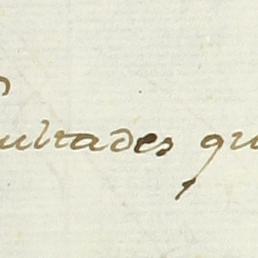 ultades qu